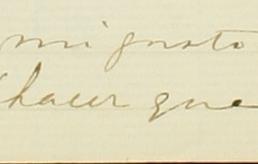 mi gusto
hacer que